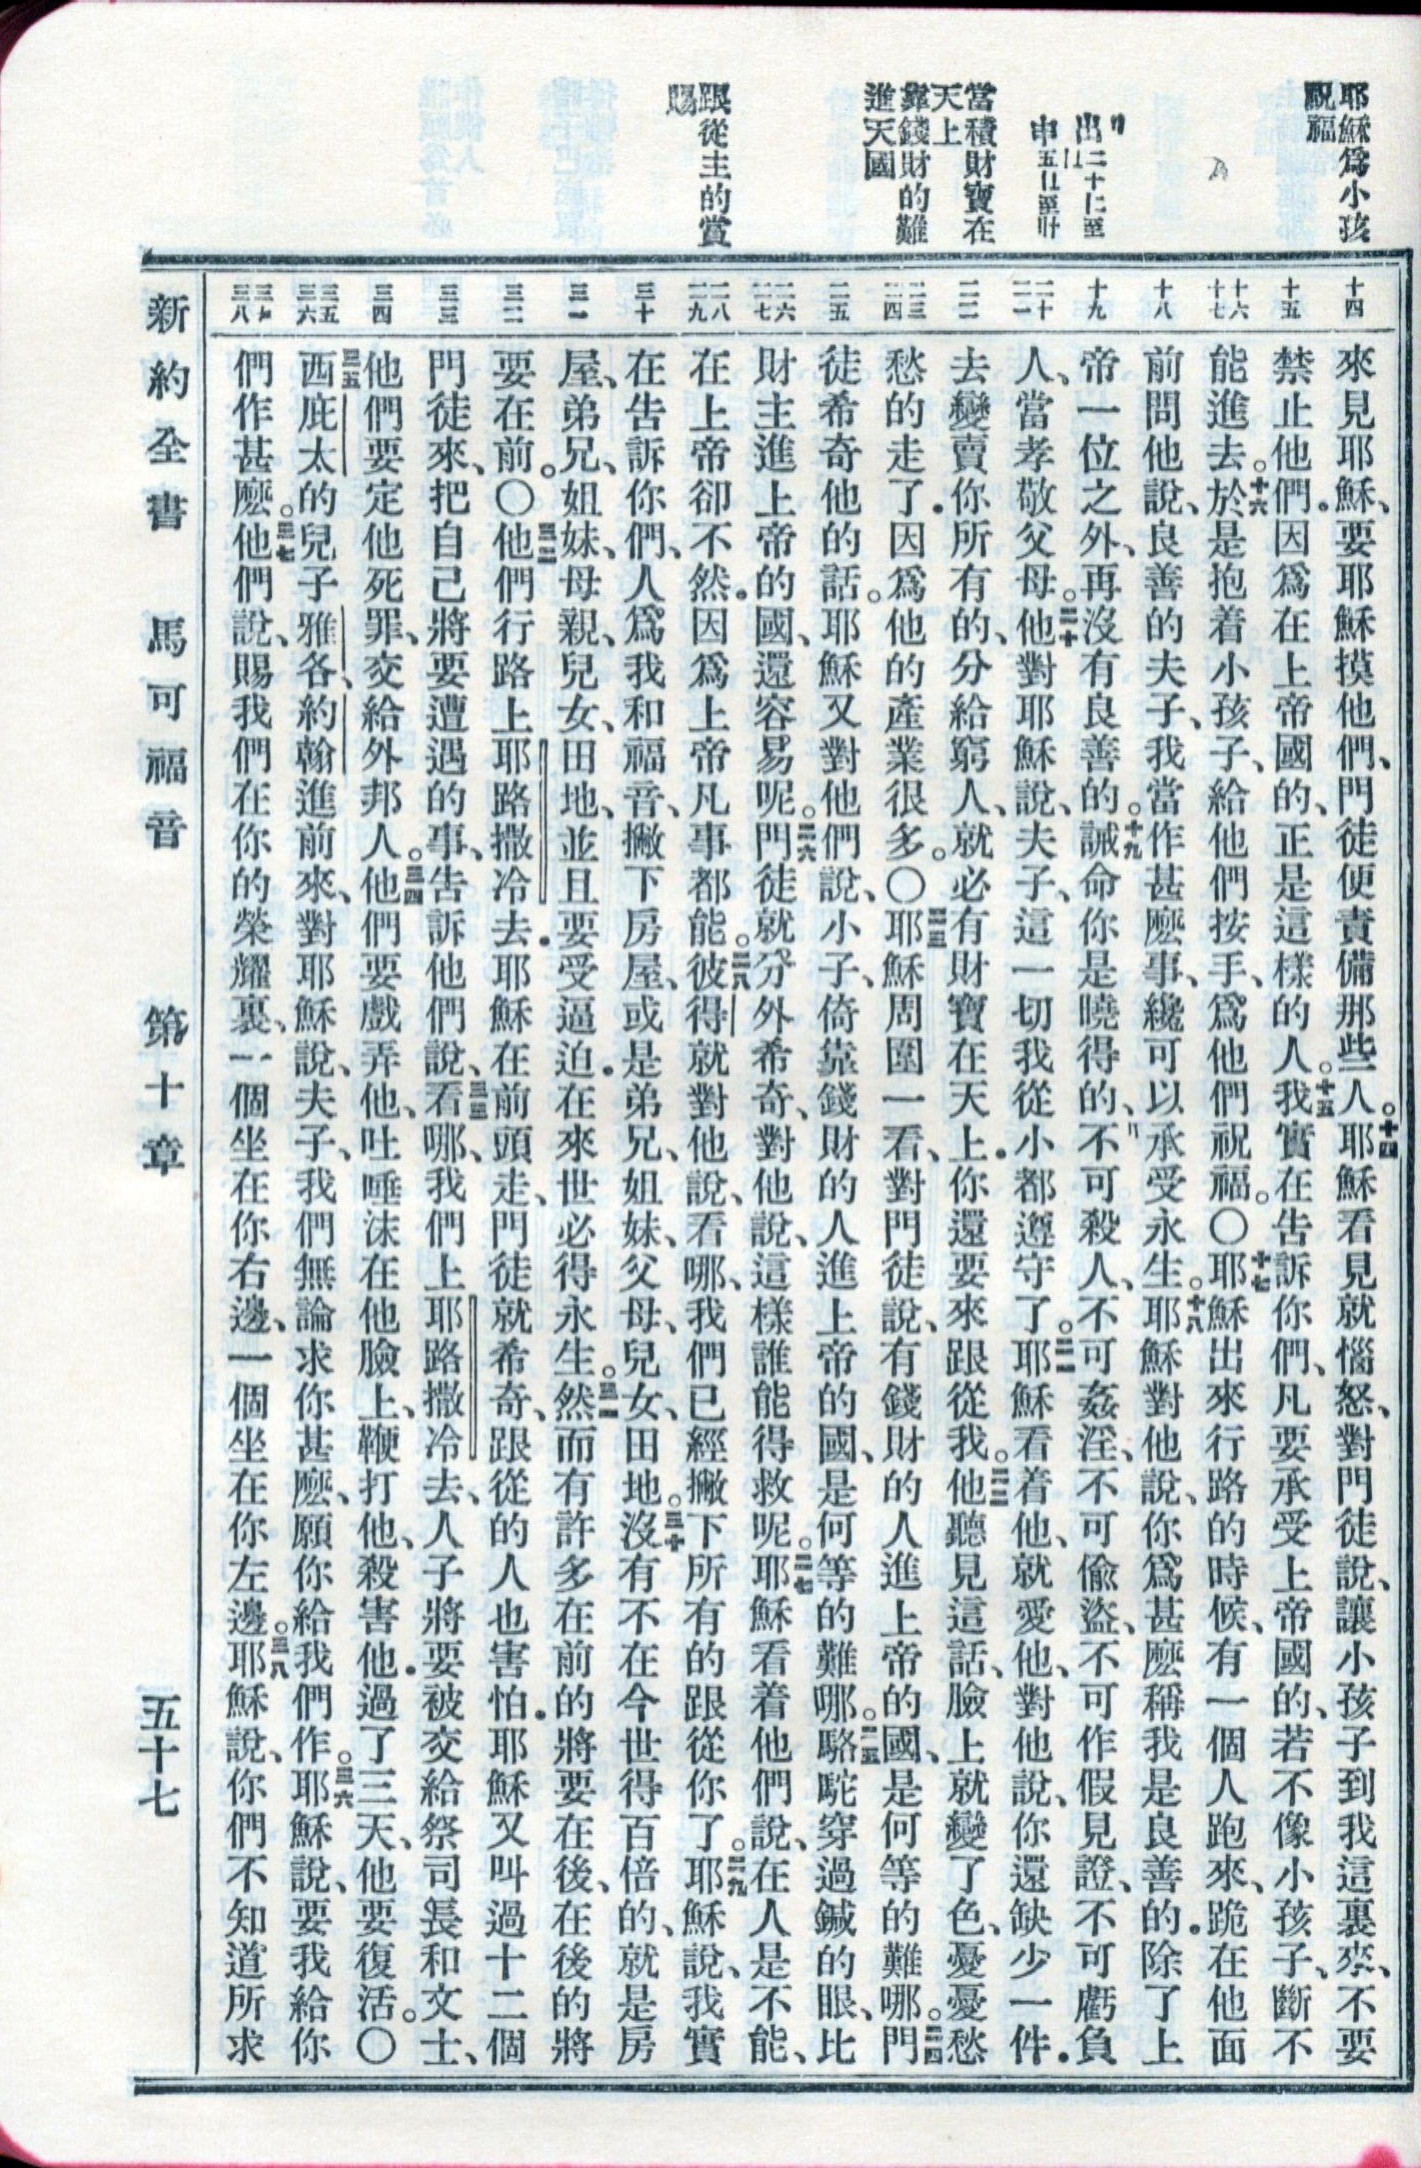 耶穌爲小孩
祝福
出二十〸至
申五〸至卄
當積財寶在
天上
靠錢財的難
進天國
跟從主的賞
賜
十四
十五
十六
十七
十八
十九
二十
二一
二二
二三
二四
二五
二六
二七
二八
二九
三十
三一
三二
三三
三四
三五
三六
三七
三八
來見耶穌、要耶穌摸他們、門徒便責備那些人。十四耶穌看見就惱怒、對門徒說、讓小孩子到我這裏來、不要
禁止他們．因爲在上帝國的、正是這樣的人。十五我實在告訴你們、凡要承受上帝國的、若不像小孩子、斷不
能進去。十六於是抱着小孩子、給他們按手、爲他們祝福。〇十七耶穌出來行路的時候、有一個人跑來、跪在他面
前問他說、良善的夫子、我當作甚麼事、纔可以承受永生。十八耶穌對他說、你爲甚麼稱我是良善的．除了上
帝一位之外、再沒有良善的。十九誡命你是曉得的、不可殺人、不可姦淫、不可偸盜、不可作假見證、不可虧負
人、當孝敬父母。二十他對耶穌說、夫子、這一切我從小都遵守了。二一耶穌看着他、就愛他、對他說、你還缺少一件．
去變賣你所有的、分給窮人、就必有財寶在天上．你還要來跟從我。二二他聽見這話、臉上就變了色、憂憂愁
愁的走了．因爲他的產業很多。〇二三耶穌周圍一看、對門徒說、有錢財的人進上帝的國、是何等的難哪。二四門
徒希奇他的話。耶穌又對他們說、小子、倚靠錢財的人進上帝的國、是何等的難哪。二五駱駝穿過鍼的眼、比
財主進上帝的國、還容易呢。二六門徒就分外希奇、對他說、這樣誰能得救呢。二七耶穌看着他們說、在人是不能、
在上帝卻不然．因爲上帝凡事都能。二八彼得就對他說、看哪、我們已經撇下所有的跟從你了。二九耶穌說、我實
在告訴你們、人爲我和福音、撇下房屋、或是弟兄、姐妹、父母、兒女、田地。三十沒有不在今世得百倍的、就是房
屋、弟兄、姐妹、母親、兒女、田地、並且要受逼迫．在來世必得永生。三一然而有許多在前的將要在後、在後的將
要在前。〇三二他們行路上耶路撒冷去．耶穌在前頭走、門徒就希奇、跟從的人也害怕．耶穌又叫過十二個
門徒來、把自己將要遭遇的事、告訴他們說、三三看哪、我們上耶路撒冷去、人子將要被交給祭司長和文士、
他們要定他死罪、交給外邦人。三四他們要戲弄他、吐唾沫在他臉上、鞭打他、殺害他．過了三天、他要復活。〇
三五西庇太的兒子雅各、約翰進前來、對耶穌說、夫子、我們無論求你甚麼、願你給我們作。三六耶穌說、要我給你
們作甚麼。三七他們說、賜我們在你的榮耀裏、一個坐在你右邊、一個坐在你左邊。三八耶穌說、你們不知道所求
新約全書 馬可福音 第十章 五十七